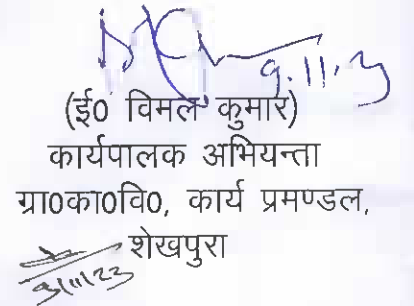 9.11.23
(ई0 विमल कुमार)
कार्यपालक अभियन्ता
ग्रा0का0वि0, कार्य प्रमण्डल,
शेखपुरा
9/11/23